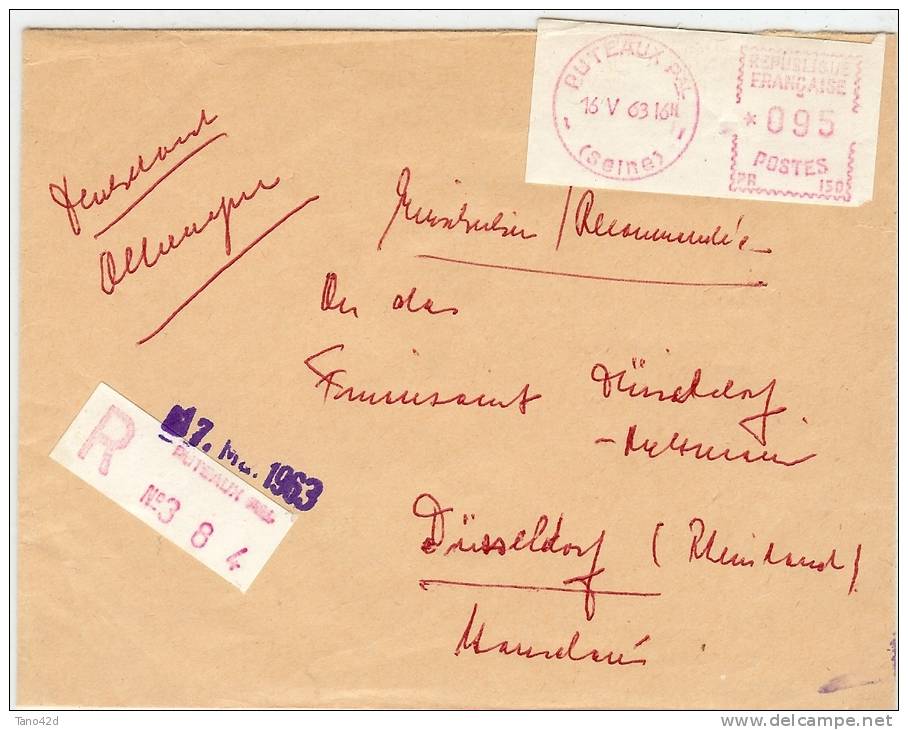 PUTEAUX PAL
16 V 63 16H
(Seine)
REPUBLIQUE
FRANÇAISE
*095
POSTES
PR 150
Deutschland
Allemagne
Einschreiben / Recommandée
An das
Finanzamt Düsseldorf
Düsseldorf (Rheinland)
R
17. Mai 1963
PUTEAUX
No 3 8 4
Tano42d
www.delcampe.net